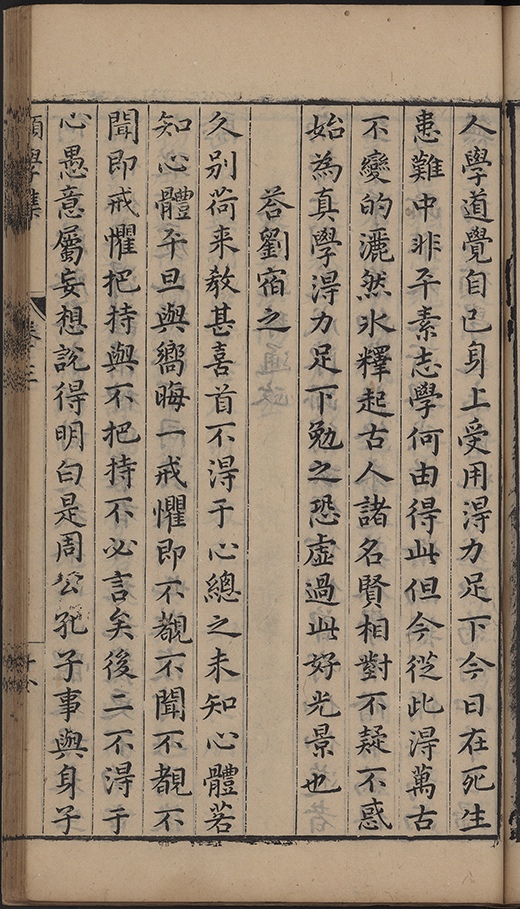 人學道覺自己身上受用得力足下今日在死生
患難中非平素志學何由得此但今從此得萬古
不變的灑然氷釋起古人諸名賢相對不疑不惑
始為真學得力足下勉之恐虛過此好光景也
荅劉宿之
久别荷来教甚喜首不得于心總之未知心體若
知心體平旦與嚮晦一戒懼即不覩不聞不覩不
聞即戒懼把持與不把持不必言矣後二不得于
心愚意屬妄想說得明白是周公孔子事與身子
願學集
卷三